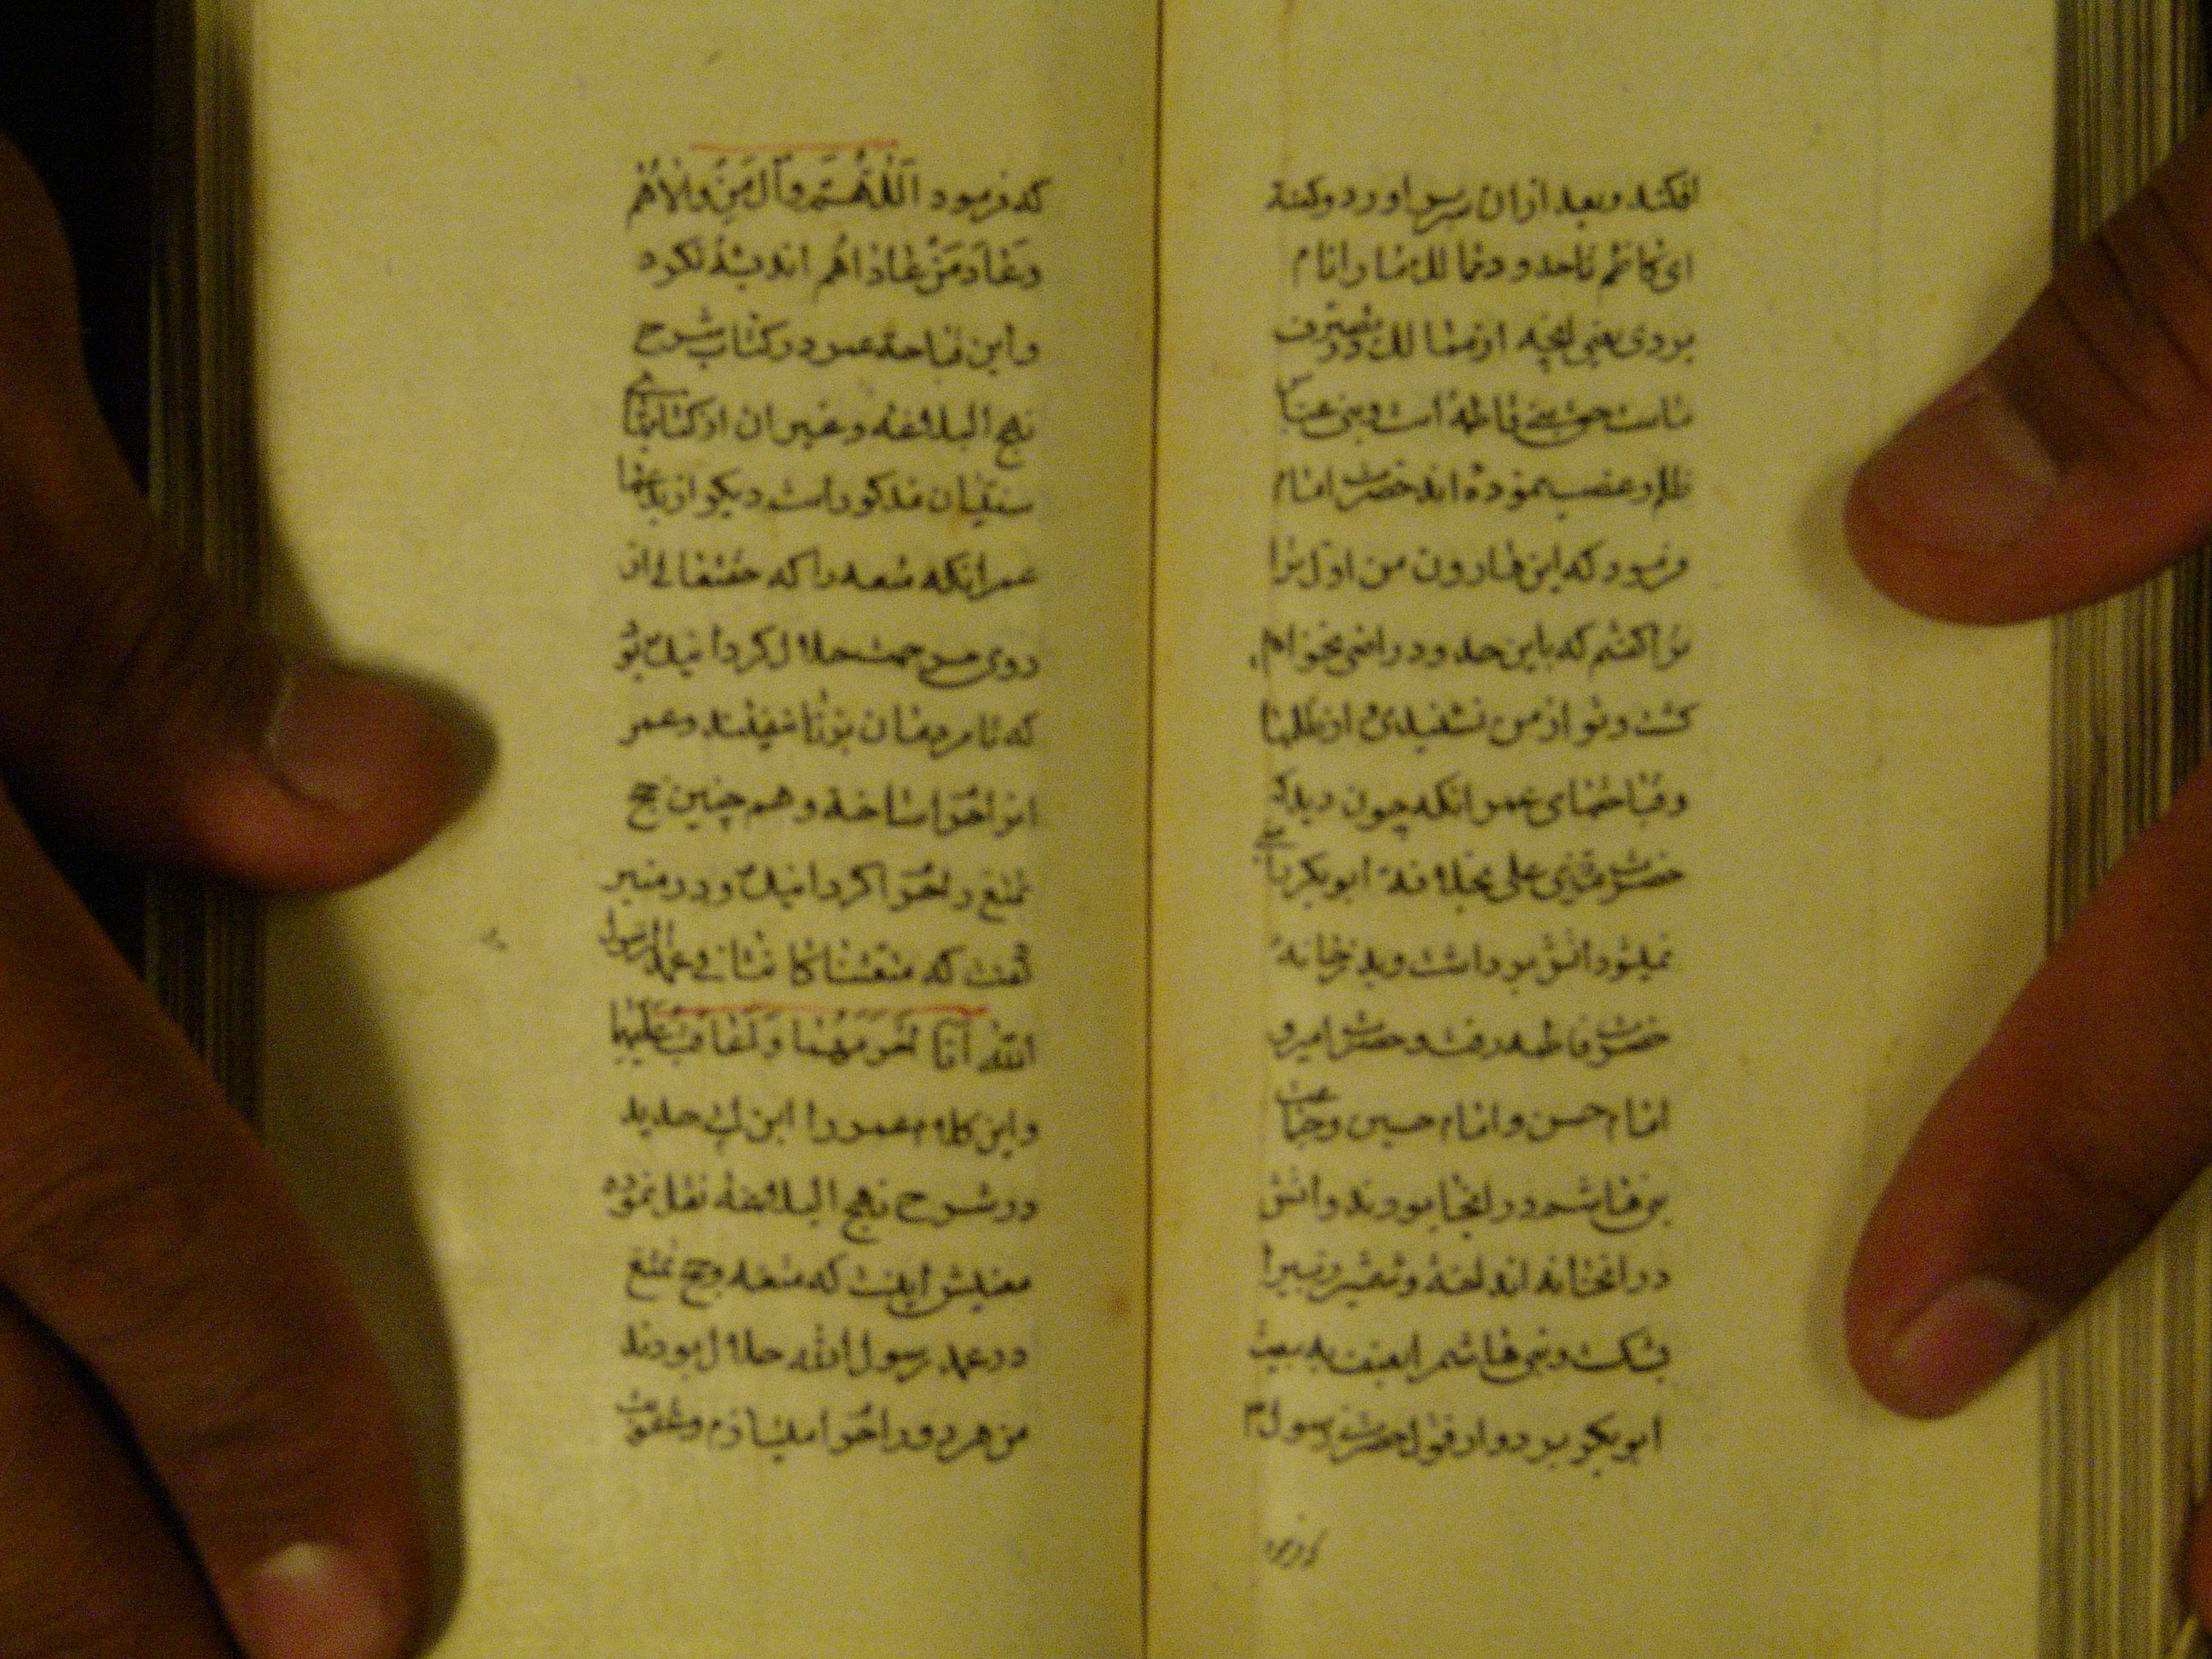 افکند و بعد ازان سر بر اورد و کفت
ای کاظم تا حدود تمام را نام
بردی یعنی انچه از ممالک در تصرف
ماست حق بنی فاطمه است و بنی عباس
ظلم و غصب نموده اند حضرت امام
فرمود که این هارون من اول ترا
ترا کفتم که باین حدود راضی نخواهی
کشت و تو از من نشنیدی از ظلمها
و قباحتهای عمر انکه چون دید که
حضرت مرتضی علی بخلافة ابوبکر راضی
نمیشود اتش برداشت و بدر خانه
حضرت فاطمه رفت و حضرت امیر و
امام حسن و امام حسین و جماعت
بنی هاشم در انجا بودند و اتش
در انخانه انداخته و شمشیر زبیر را
بشکست و بنی هاشم را بعنف به بیعت
ابوبکر برد و از قول حضرت رسول م
که فرمود
که فرمود اللّهُمَّ وَالِ مَنْ وٰلاهُم
وَعَادِ مَنْ عَاداهُم اندیشه نکرد
و این قباحة عمر در کتاب شرح
نهج البلاغه و غیر ان از کتابهای
سنیان مذکور است دیکر از بدعتها
عمر انکه متعه را که حقتعالی از
روی مرحمت حلال کردانیده بود
که تا مردمان بزنا نیفتند و عمر
انرا حرام ساخة و هم چنین حج
تمتع را حرام کردانیده و در منبر
کفت که متعتان کانتا فی عهد رسول
الله أنا اُحَرِّمُهُما وَاُعَاقِبُ عَلَیْهِما
و این کلام عمر را ابن ابی حدید
در شرح نهج البلاغه نقل نموده
معنیش اینست که متعه و حج تمتع
در عهد رسول الله حلال بودند
من هر دو را حرام میسازم و عقوبت